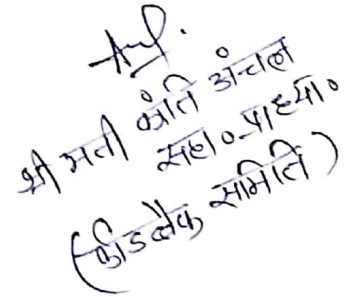 श्रीमती क्रांति अंचल
सहा० प्राध्या०
(फीडबैक समिति)